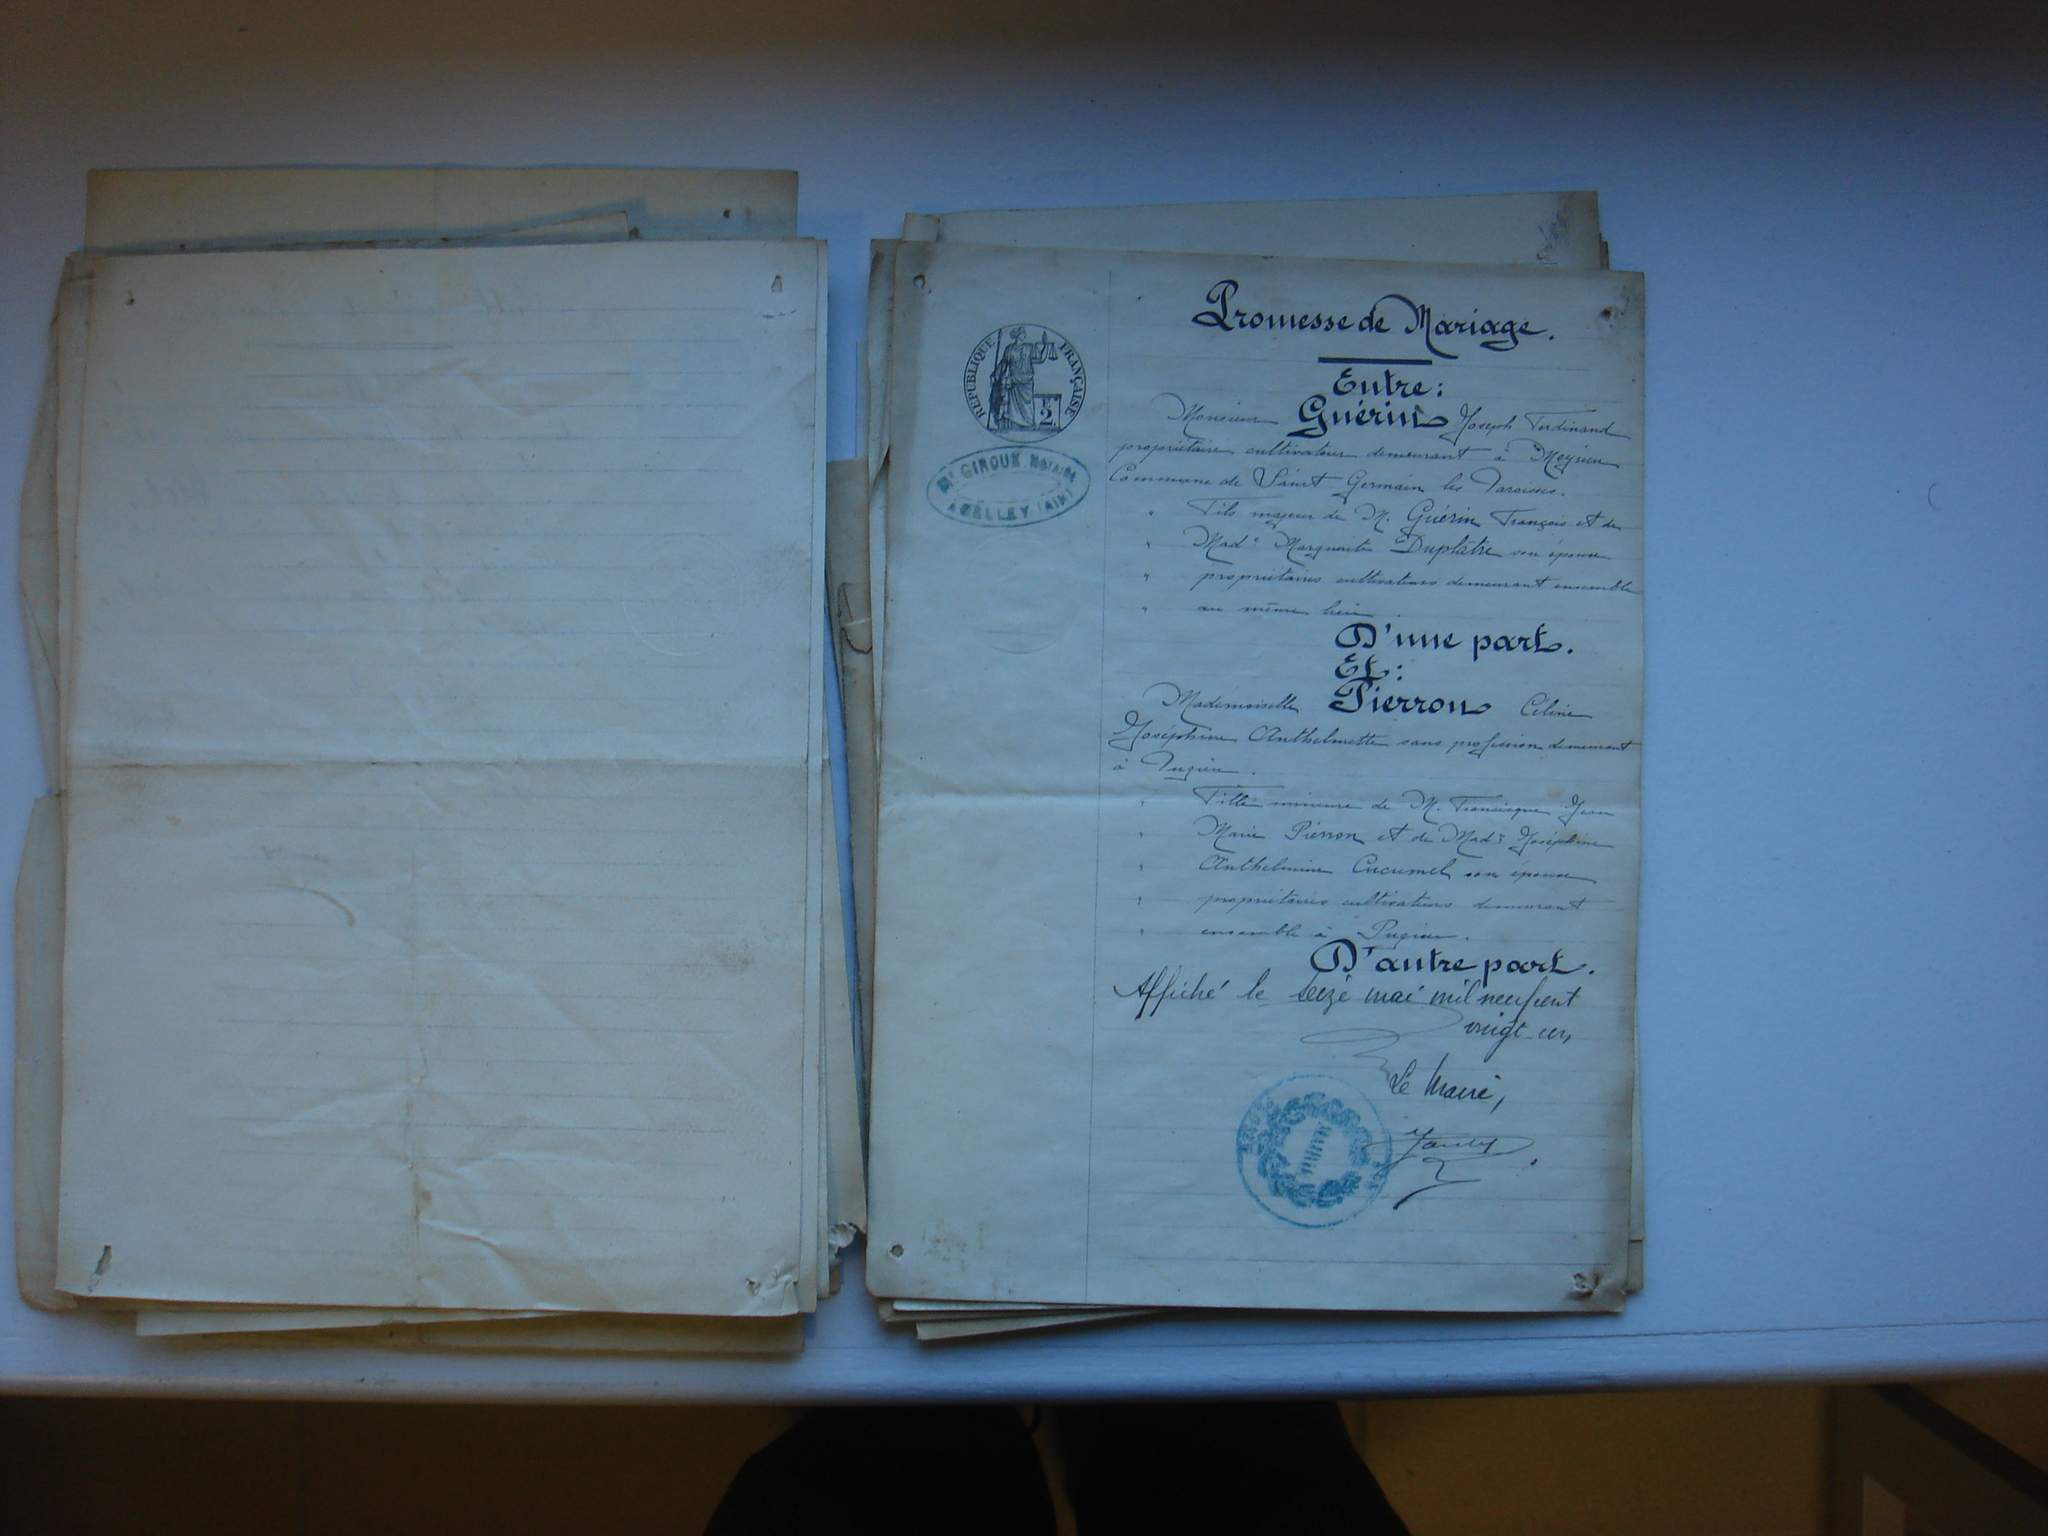 Promesse de Mariage.
Entre:
Monsieur Guérin Joseph Ferdinand
propriétaire cultivateur demeurant à Meyrieu
Commune de Saint Germain les Paroisses.
" Fils majeur de M. Guérin François et de
" Made Marguerite Duplâtre son épouse
" propriétaires cultivateurs demeurant ensemble
" au même lieu.
D'une part.
Et:
Mademoiselle Pierron Céline
Joséphine Anthelmette sans profession demeurant
à Pugieu.
" Fille mineure de M. Francisque Jean
" Marie Pierron et de Made Joséphine
" Anthelmine Cucumel son épouse
" propriétaires cultivateurs demeurant
" ensemble à Pugieu.
D'autre part.
Affiché le seize mai mil neuf cent
vingt-un
Le Maire,
RÉPUBLIQUE FRANÇAISE
2F
Me GIROUX NOTAIRE
A BELLEY (AIN)
MAIRIE